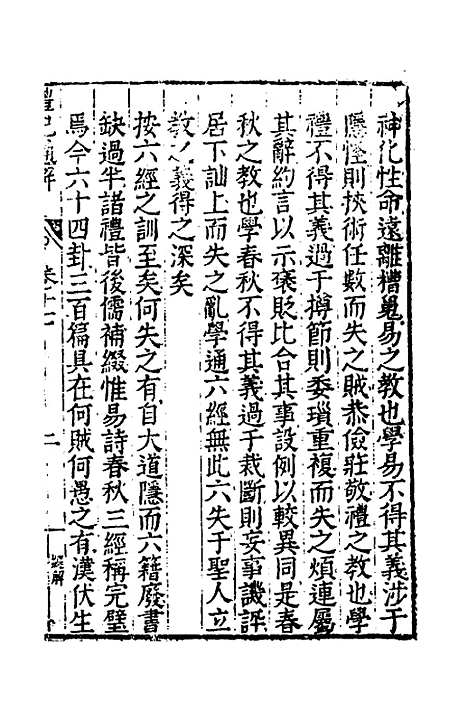 神化性命遠離糟魄易之教也學易不得其義涉于
隱怪則挾術任數而失之賊恭儉莊敬禮之教也學
禮不得其義過于撙節則委瑣重複而失之煩連屬
其辭約言以示褒貶比合其事設例以較異同是春
秋之教也學春秋不得其義過于裁斷則妄事譏評
居下訕上而失之亂學通六經無此六失于聖人立
教之義得之深矣
按六經之訓至矣何失之有自大道隱而六籍廢書
缺過半諸禮皆後儒補綴惟易詩春秋三經稱完璧
焉今六十四卦三百篇具在何賊何愚之有漢伏生
禮記通解
卷十七
二
經解